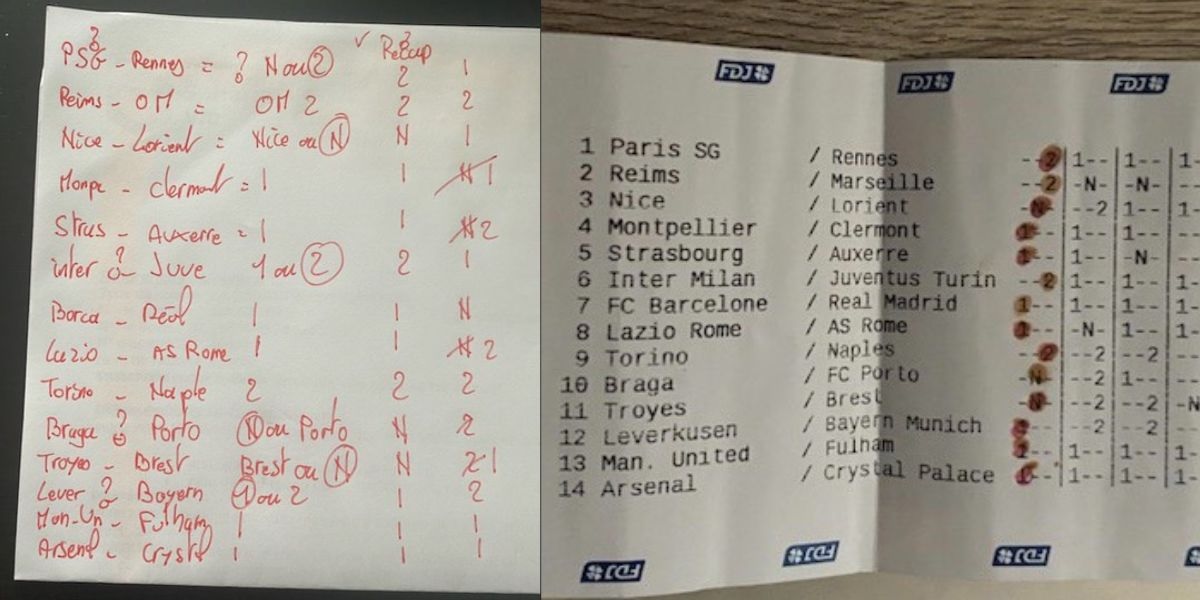 ? ✓ Récap
PSG - Rennes = ? N ou 2 2 1
Reims - OM = OM 2 2 2
Nice - Lorient = Nice ou N N 1
Monpe - Clermont = 1 1 N 1
Stras - Auxerre = 1 1 N 2
inter ? Juve 1 ou 2 2 1
Barca - Réal 1 1 N
Lazio - AS Rome 1 1 N 2
Torino - Naple 2 2 2
Braga ? Porto N ou Porto N 2
Troyes - Brest Brest ou N N 2 1
Lever ? Bayern 1 ou 2 1 2
Man-Un - Fulham 1 1 1
Arsenal - Crystal 1 1 1
FDJ FDJ FDJ
1 Paris SG / Rennes --2 1-- 1-- 1-
2 Reims / Marseille --2 -N- -N- ---
3 Nice / Lorient -N- --2 1-- 1-
4 Montpellier / Clermont 1-- 1-- 1-- ---
5 Strasbourg / Auxerre 1-- 1-- -N- ---
6 Inter Milan / Juventus Turin --2 1-- 1-- 1-
7 FC Barcelone / Real Madrid 1-- 1-- 1-- 1-
8 Lazio Rome / AS Rome 1-- -N- 1-- 1-
9 Torino / Naples --2 --2 --2 ---
10 Braga / FC Porto -N- --2 1-- ---
11 Troyes / Brest -N- --2 --2 -N
12 Leverkusen / Bayern Munich --2 --2 ---
13 Man. United / Fulham 1-- 1-- 1-- 1-
14 Arsenal / Crystal Palace 1-- 1-- 1-- 1-
FDJ FDJ FDJ